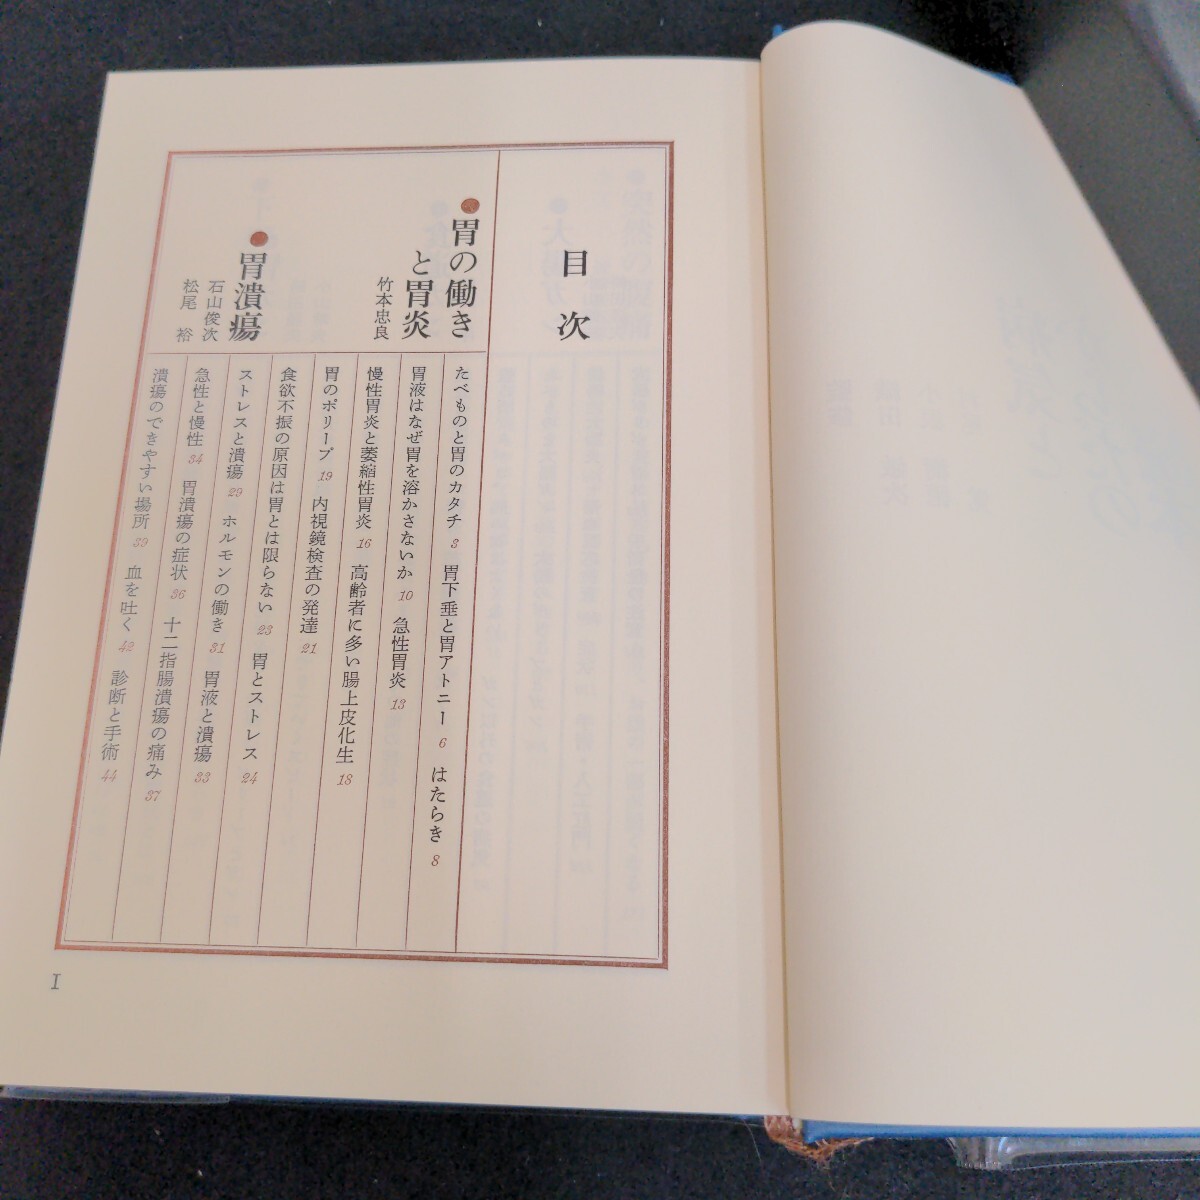 目次
●胃の働き
と胃炎
竹本忠良
たべものと胃のカタチ 3 胃下垂と胃アトニー 6 はたらき 8
胃液はなぜ胃を溶かさないか 10 急性胃炎 13
慢性胃炎と萎縮性胃炎 16 高齢者に多い腸上皮化生 18
胃のポリープ 19 内視鏡検査の発達 21
食欲不振の原因は胃とは限らない 23 胃とストレス 24
●胃潰瘍
石山俊次
松尾 裕
ストレスと潰瘍 29 ホルモンの働き 31 胃液と潰瘍 33
急性と慢性 34 胃潰瘍の症状 36 十二指腸潰瘍の痛み 37
潰瘍のできやすい場所 39 血を吐く 42 診断と手術 44
I